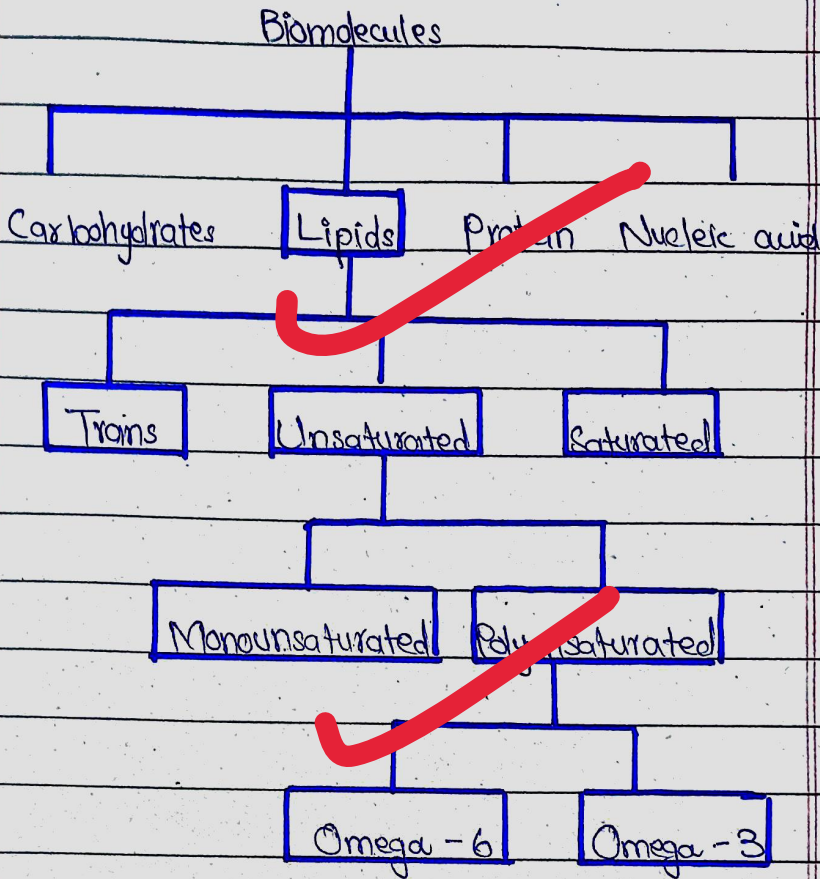 Biomolecules
Carbohydrates Lipids Protein Nucleic acid
Trans Unsaturated Saturated
Monounsaturated Polyunsaturated
Omega - 6 Omega - 3